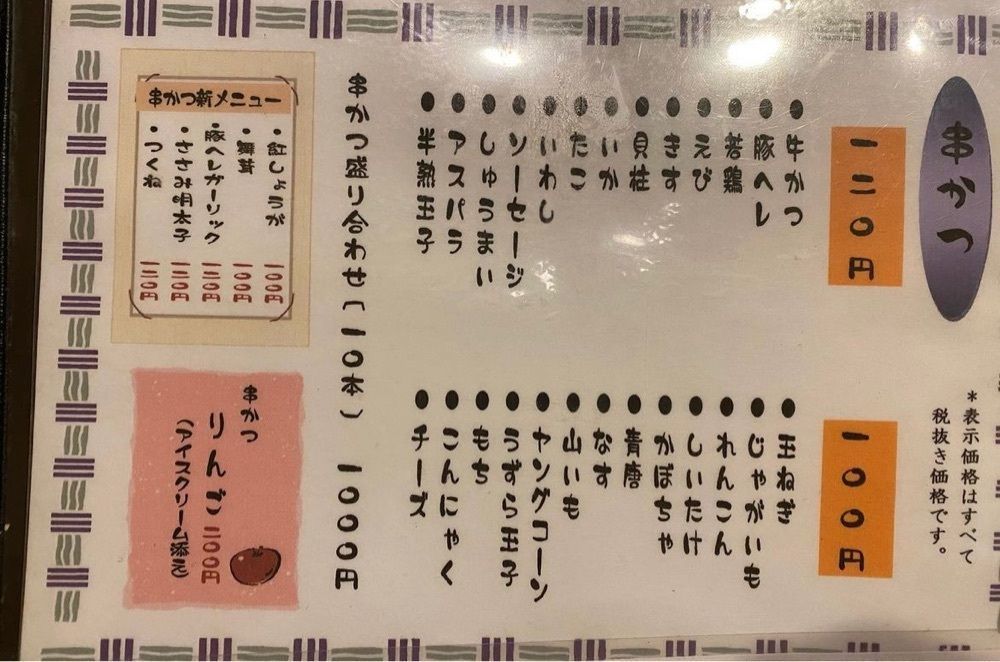 串かつ
＊表示価格はすべて
税抜き価格です。
一二〇円
●牛かつ
●豚ヘレ
●若鶏
●えび
●きす
●貝柱
●いか
●たこ
●いわし
●ソーセージ
●しゅうまい
●アスパラ
●半熟玉子
一〇〇円
●玉ねぎ
●じゃがいも
●れんこん
●しいたけ
●かぼちゃ
●青唐
●なす
●山いも
●ヤングコーン
●うずら玉子
●もち
●こんにゃく
●チーズ
串かつ盛り合わせ（一〇本） 一〇〇〇円
串かつ新メニュー
・紅しょうが 一〇〇円
・舞茸 一〇〇円
・豚ヘレガーリック 一二〇円
・ささみ明太子 一二〇円
・つくね 一二〇円
串かつ
りんご 二〇〇円
（アイスクリーム添え）